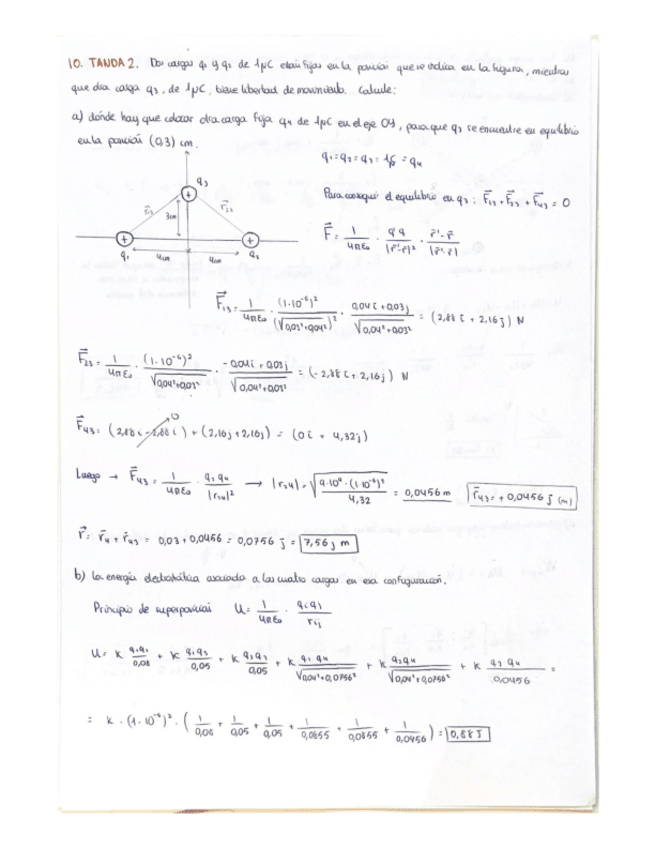 10. TANDA 2. Dos cargas q₁ y q₂ de 1μC están fijas en la posición que se indica en la figura, mientras
que otra carga q₃, de 1μC, tiene libertad de movimiento. Calcule:
a) dónde hay que colocar otra carga fija q₄ de 1μC en el eje OY, para que q₃ se encuentre en equilibrio
en la posición (0,3) cm.
q₁=q₂=q₃= =q₄
q₃
+
Para conseguir el equilibrio en q₃: F⃗₁₃+F⃗₂₃+F⃗₄₃=0
r⃗₁₃ 3cm r⃗₂₃
+ +
q₁ 4cm 4cm q₂
F⃗ = 1/4πε₀ · q q/|r⃗'-r⃗|² · r⃗'-r⃗/|r⃗'-r⃗|
F⃗₁₃ = 1/4πε₀ · (1·10⁻⁶)²/(√0,03²+0,04²)² · 0,04i+0,03j/√0,04²+0,03² = (2,88i + 2,16j) N
F⃗₂₃ = 1/4πε₀ · (1·10⁻⁶)²/√0,04²+0,03² · -0,04i+0,03j/√0,04²+0,03² = (-2,88i+2,16j) N
F⃗₄₃ = (2,88i-2,88i) + (2,16j+2,16j) = (0i + 4,32j)
0
Luego → F⃗₄₃ = 1/4πε₀ · q₃q₄/|r₃₄|² → |r₃₄| = √9·10⁹·(1·10⁻⁶)²/4,32 = 0,0456 m r⃗₄₃ = +0,0456 j (m)
r⃗ = r⃗₄+r⃗₄₃ = 0,03+0,0456 = 0,0756 j = 7,56 j m
b) la energía electrostática asociada a las cuatro cargas en esa configuración.
Principio de superposición U = 1/4πε₀ · qᵢqⱼ/rᵢⱼ
U = K q₁q₂/0,08 + K q₁q₃/0,05 + K q₂q₃/0,05 + K q₁q₄/√0,04²+0,0756² + K q₂q₄/√0,04²+0,0756² + K q₃q₄/0,0456 =
= K·(1·10⁻⁶)²·(1/0,08 + 1/0,05 + 1/0,05 + 1/0,0855 + 1/0,0855 + 1/0,0456) = 0,88J